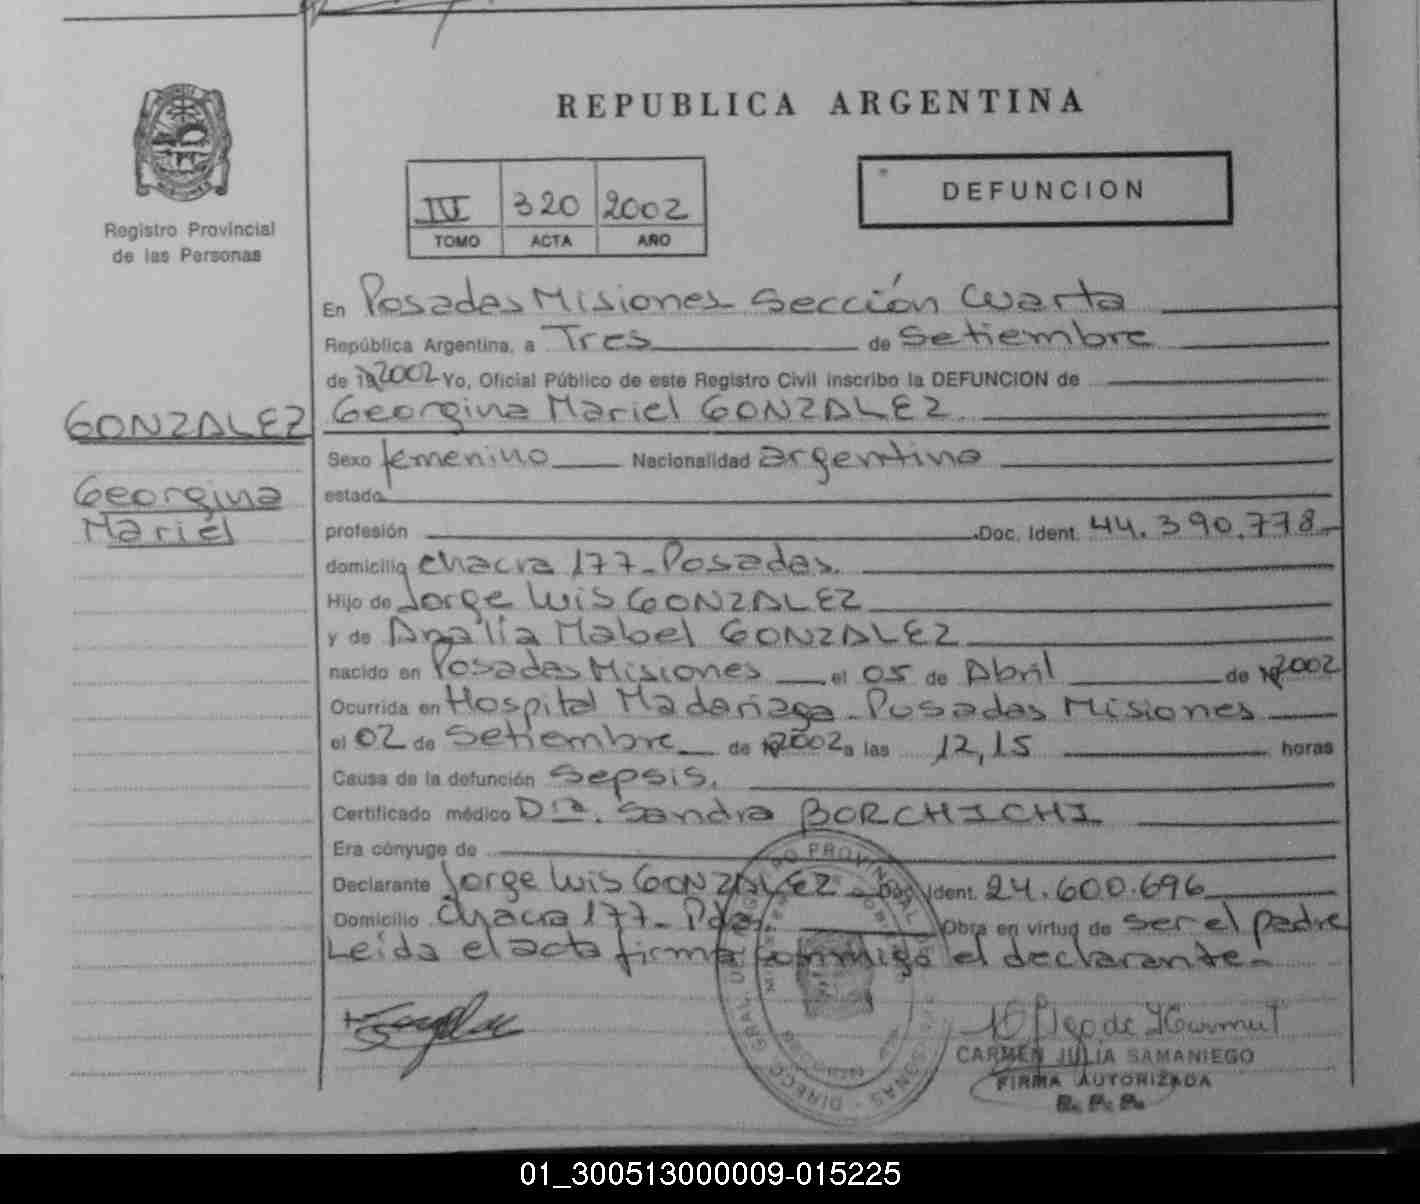 REPUBLICA ARGENTINA
Registro Provincial
de las Personas
III 320 2002
TOMO ACTA AÑO
DEFUNCION
En Posadas Misiones Sección Cuarta
República Argentina, a Tres de Setiembre
de 2002 Yo, Oficial Público de este Registro Civil inscribo la DEFUNCION de
GONZALEZ
Georgina Mariel GONZALEZ
Georgina
Mariel
Sexo femenino Nacionalidad argentina
estado
profesión Doc. Ident. 44.390.778
domicilio chacra 177_Posadas.
Hijo de Jorge Luis GONZALEZ
y de Analía Mabel GONZALEZ
nacido en Posadas Misiones el 05 de Abril de 2002
Ocurrida en Hospital Madariaga_Posadas Misiones
el 02 de Setiembre de 2002 a las 12,15 horas
Causa de la defunción Sepsis.
Certificado médico Dra. Sandra BORCHICHI
Era cónyuge de
Declarante Jorge Luis GONZALEZ Doc. Ident. 24.600.696
Domicilio Chacra 177_Pdas. Obra en virtud de ser el padre
Leída el acta firma conmigo el declarante_
CARMEN JULIA SAMANIEGO
FIRMA AUTORIZADA
R. P. P.
01_300513000009-015225